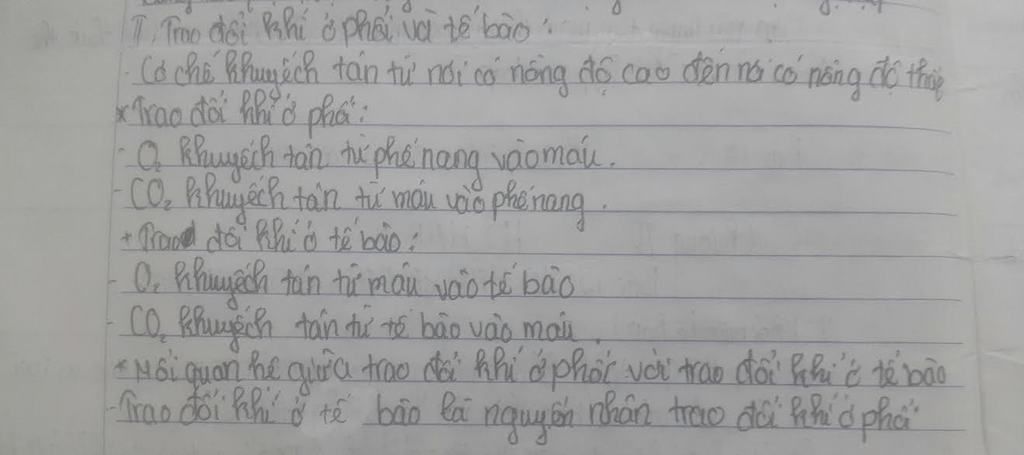 II, Trao đổi khí ở phổi và tế bào :
- Cơ chế khuyếch tán từ nơi có nồng độ cao đến nơi có nồng độ thấp
* Trao đổi khí ở phổi :
- O₂ khuyếch tán từ phế nang vào máu.
- CO₂ khuyếch tán từ máu vào phế nang.
+ Trao đổi khí ở tế bào :
- O₂ khuyếch tán từ máu vào tế bào
- CO₂ khuyếch tán từ tế bào vào máu.
* Mối quan hệ giữa trao đổi khí ở phổi với trao đổi khí ở tế bào
- Trao đổi khí ở tế bào là nguyên nhân trao đổi khí ở phổi